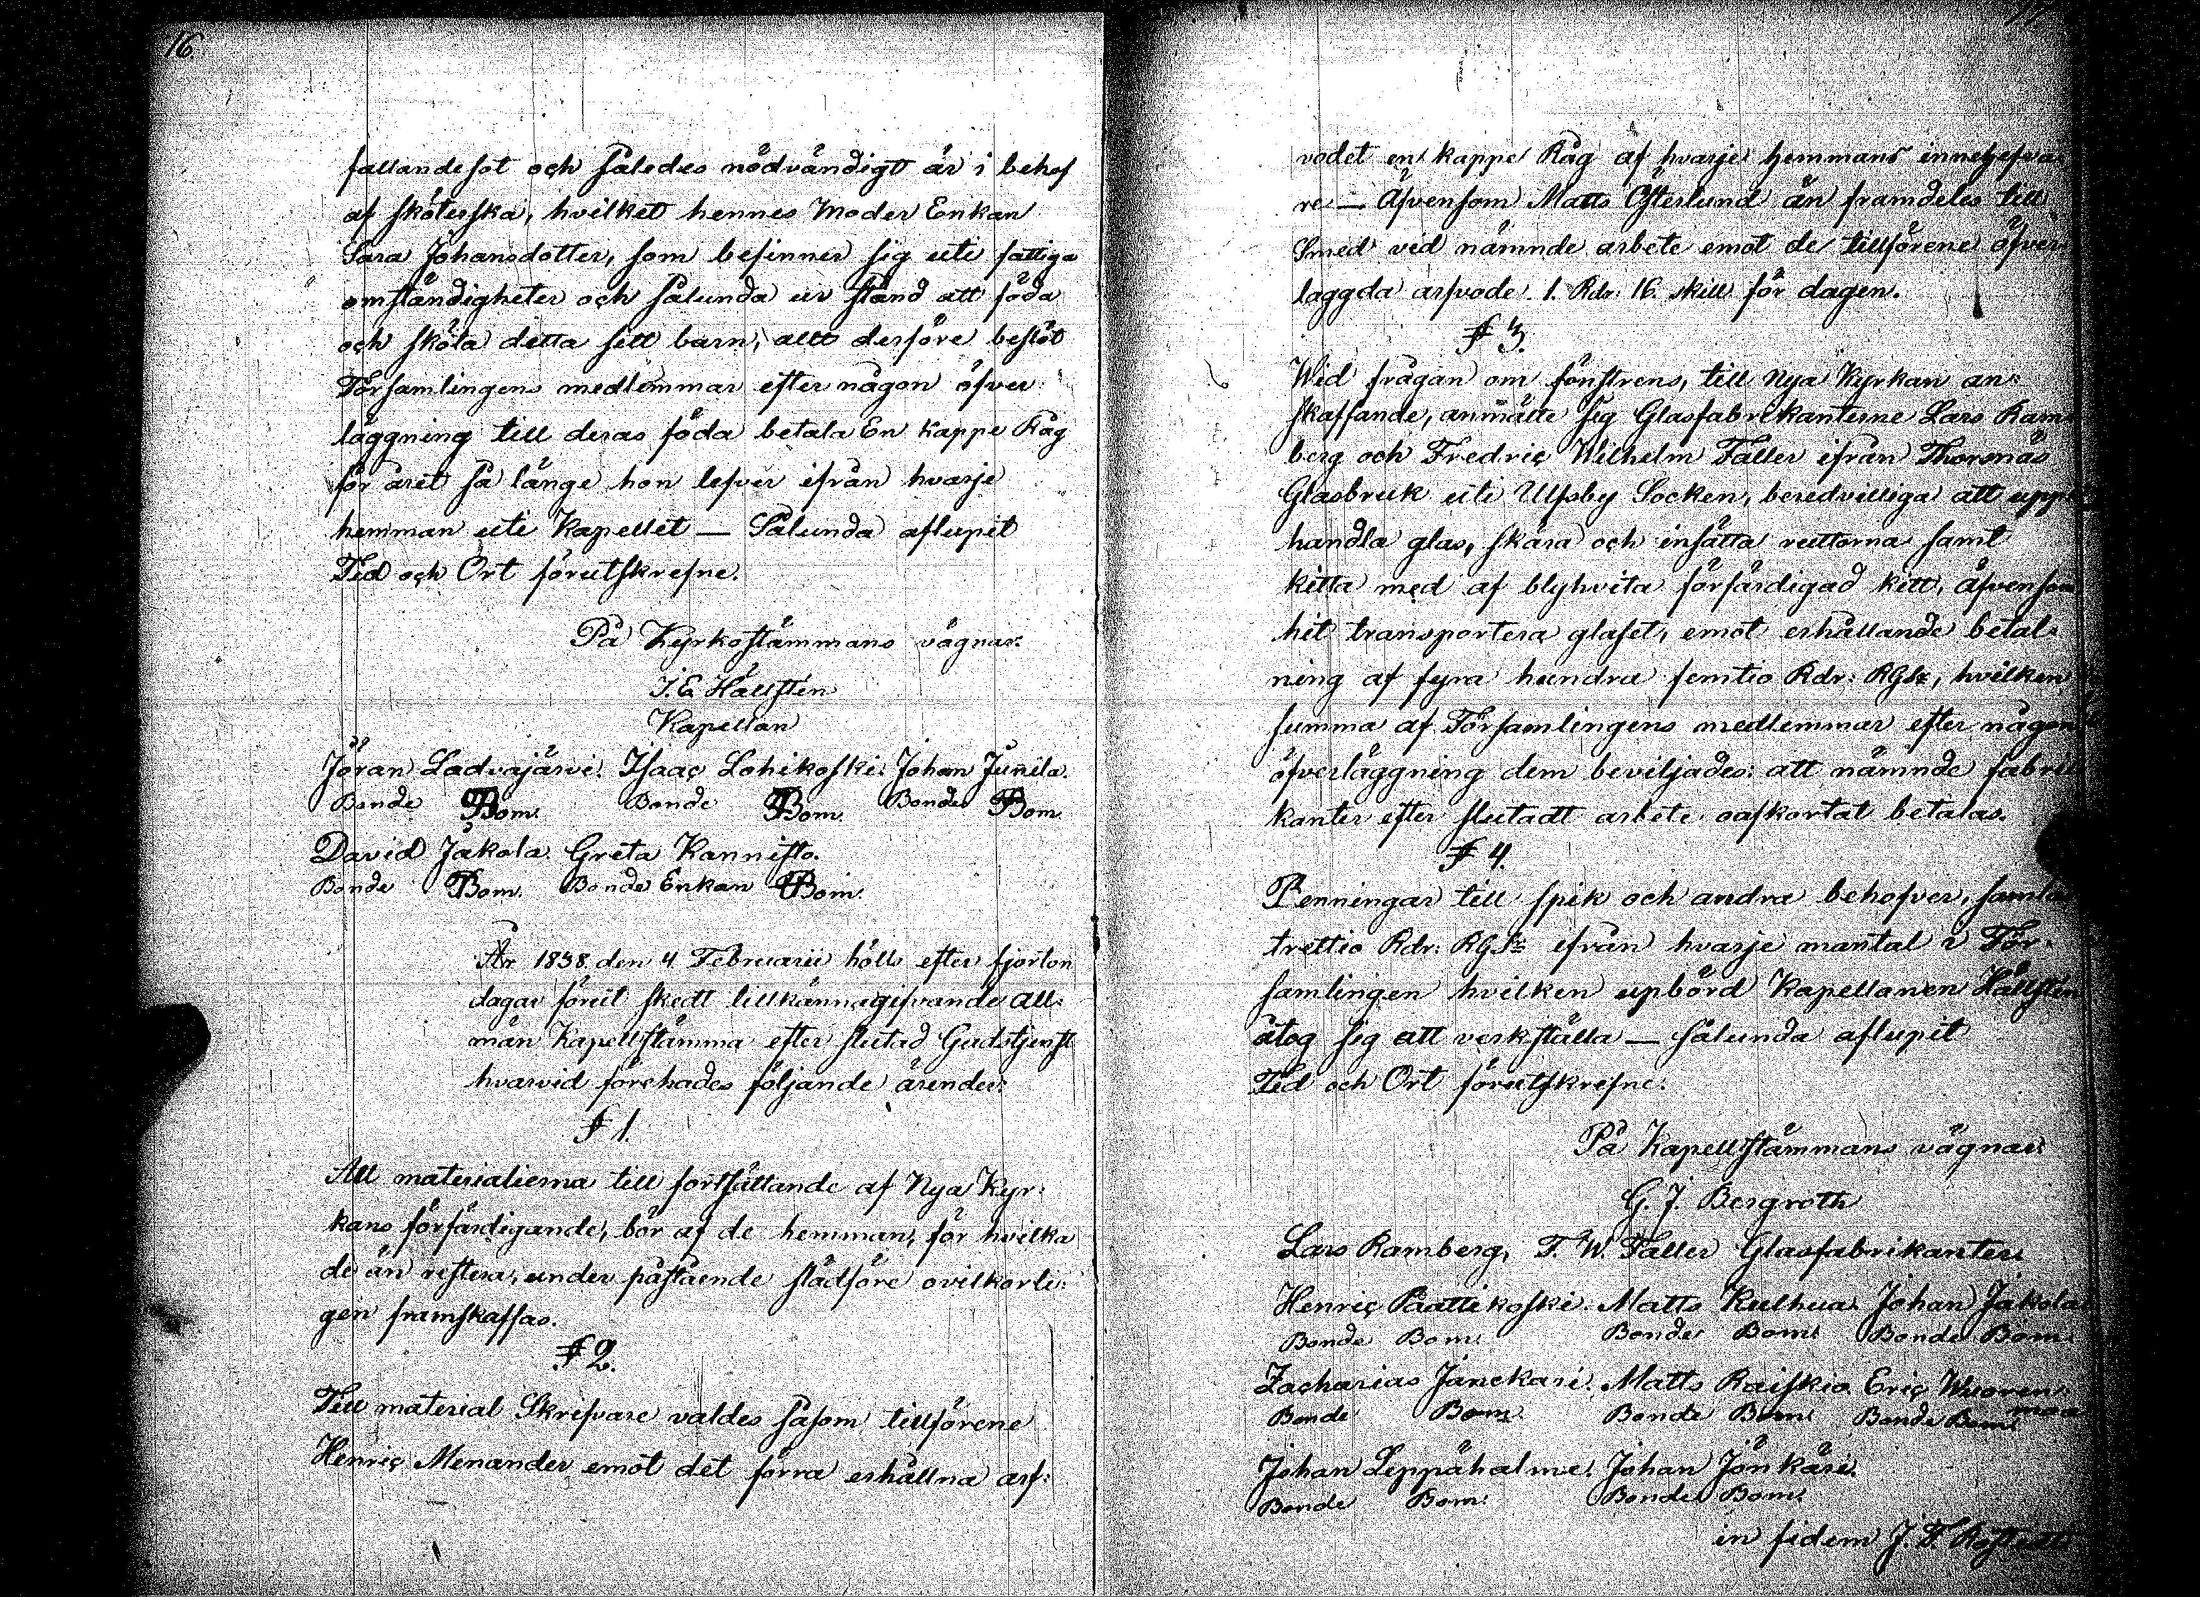 16.
fallandesot och således nödvändigt är i behof
af sköterska, hvilket hennes Moder Enkan
Sara Johansdotter, som befinner sig uti fattiga
omständigheter och sålunda ur stånd att föda
och sköta detta sitt barn, allt derföre beslöt
Församlingens medlemmar efter någon öfver
läggning till deras föda betala En kappe Råg
för året så länge hon lefver ifrån hvarje
hemman uti Kapellet — Sålunda aflupit
Tid och Ort förutskrefne.
På Kyrkostämmans vägnar:
J. E. Hällstén
Kapellan
Jöran Ladvajärvi. Isaac Lohikoski. Johan Junila.
Bonde Bom. Bonde Bom. Bonde Bom.
David Jakola Greta Kannisto.
Bonde Bom. Bonde Enkan Bom.
År 1838. den 4 Februarii hölls efter fjorton
dagar förut skedt tillkännagifvande all:
män Kapellstämma efter slutad Gudstjenst
hvarvid förehades följande ärender:
§ 1.
All materialierna till fortsättande af Nya Kyr:
kans förfärdigande, bör af de hemman, för hvilka
de än restera, under påstående slädföre ovilkorli:
gen framskaffas.
§ 2.
Till material Skrifvare valdes såsom tillförene
Henric Menander emot det förra erhållna arf:
vodet en kappe Råg af hvarje hemmans innehafva
re — Äfvensom Matts Österlund än framdeles till
Smed vid nämnde arbete emot de tillförene öfver
laggda arfvode 1. Rdr: 16. skill för dagen.
§ 3.
Wid frågan om fönstrens, till Nya Kyrkan an:
skaffande, anmälte sig Glasfabrikanterne Lars Ram
berg och Fredric Wilhelm Faller ifrån Thorsnäs
Glasbruk uti Ulfsby Socken, beredvilliga att upp
handla glas, skära och insätta rutorna samt
kitta med af blyhvita förfärdigad kitt, äfvensom
hit transportera glaset, emot erhållande betal:
ning af fyra hundra femtio Rdr: RGS, hvilken
summa af Församlingens medlemmar efter någon
öfverläggning dem beviljades: att nämnde fabri
kanter efter slutadt arbete oafkortat betalas.
§ 4.
Penningar till spik och andra behofver, samla
trettio Rdr: RGS ifrån hvarje mantal i För:
samlingen hvilken upbörd Kapellanen Hällstén
åtog sig att verkställa — Sålunda aflupit
Tid och Ort förutskrefne.
På Kapellstämmans vägnar:
G. J. Bergroth
Lars Ramberg, F. W. Faller Glasfabrikanter.
Henric Paattikoski. Matts Kulhua. Johan Jakola
Bonde Bom. Bonde Bom. Bonde Bom.
Zacharias Jänckäri. Matts Raiskio. Eric Wuoren
maa
Bonde Bom. Bonde Bom. Bonde Bom.
Johan Leppähalme. Johan Jönkäri.
Bonde Bom. Bonde Bom.
in fidem J. F.